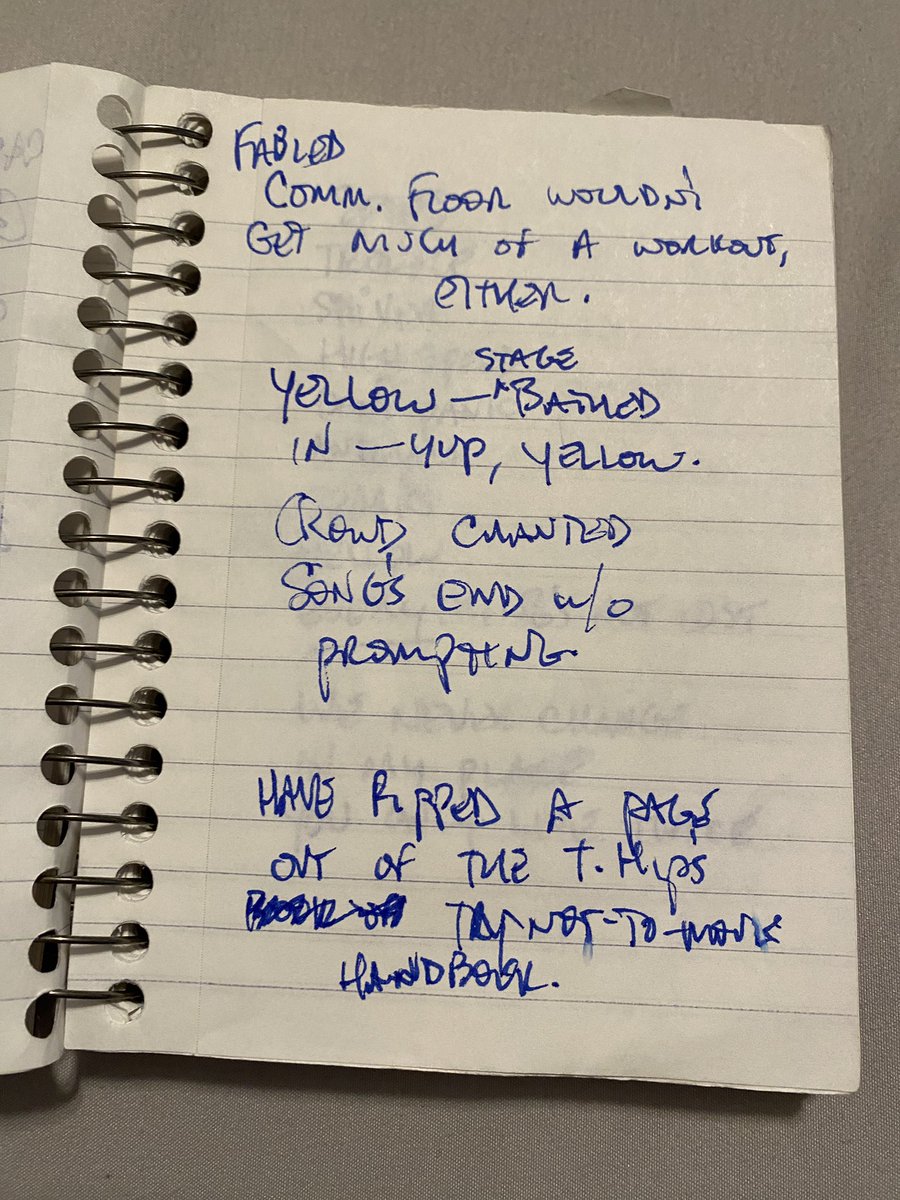 FABLED
COMM. FLOOR WOULDN'T
GET MUCH OF A WORKOUT,
EITHER.
STAGE
YELLOW — ^BATHED
IN — YUP, YELLOW.
CROWD CHANTED
SONG'S END W/O
PROMPTING.
HAVE RIPPED A PAGE
OUT OF THE T. HIPS
TRY-NOT-TO-WORK
HANDBOOK.